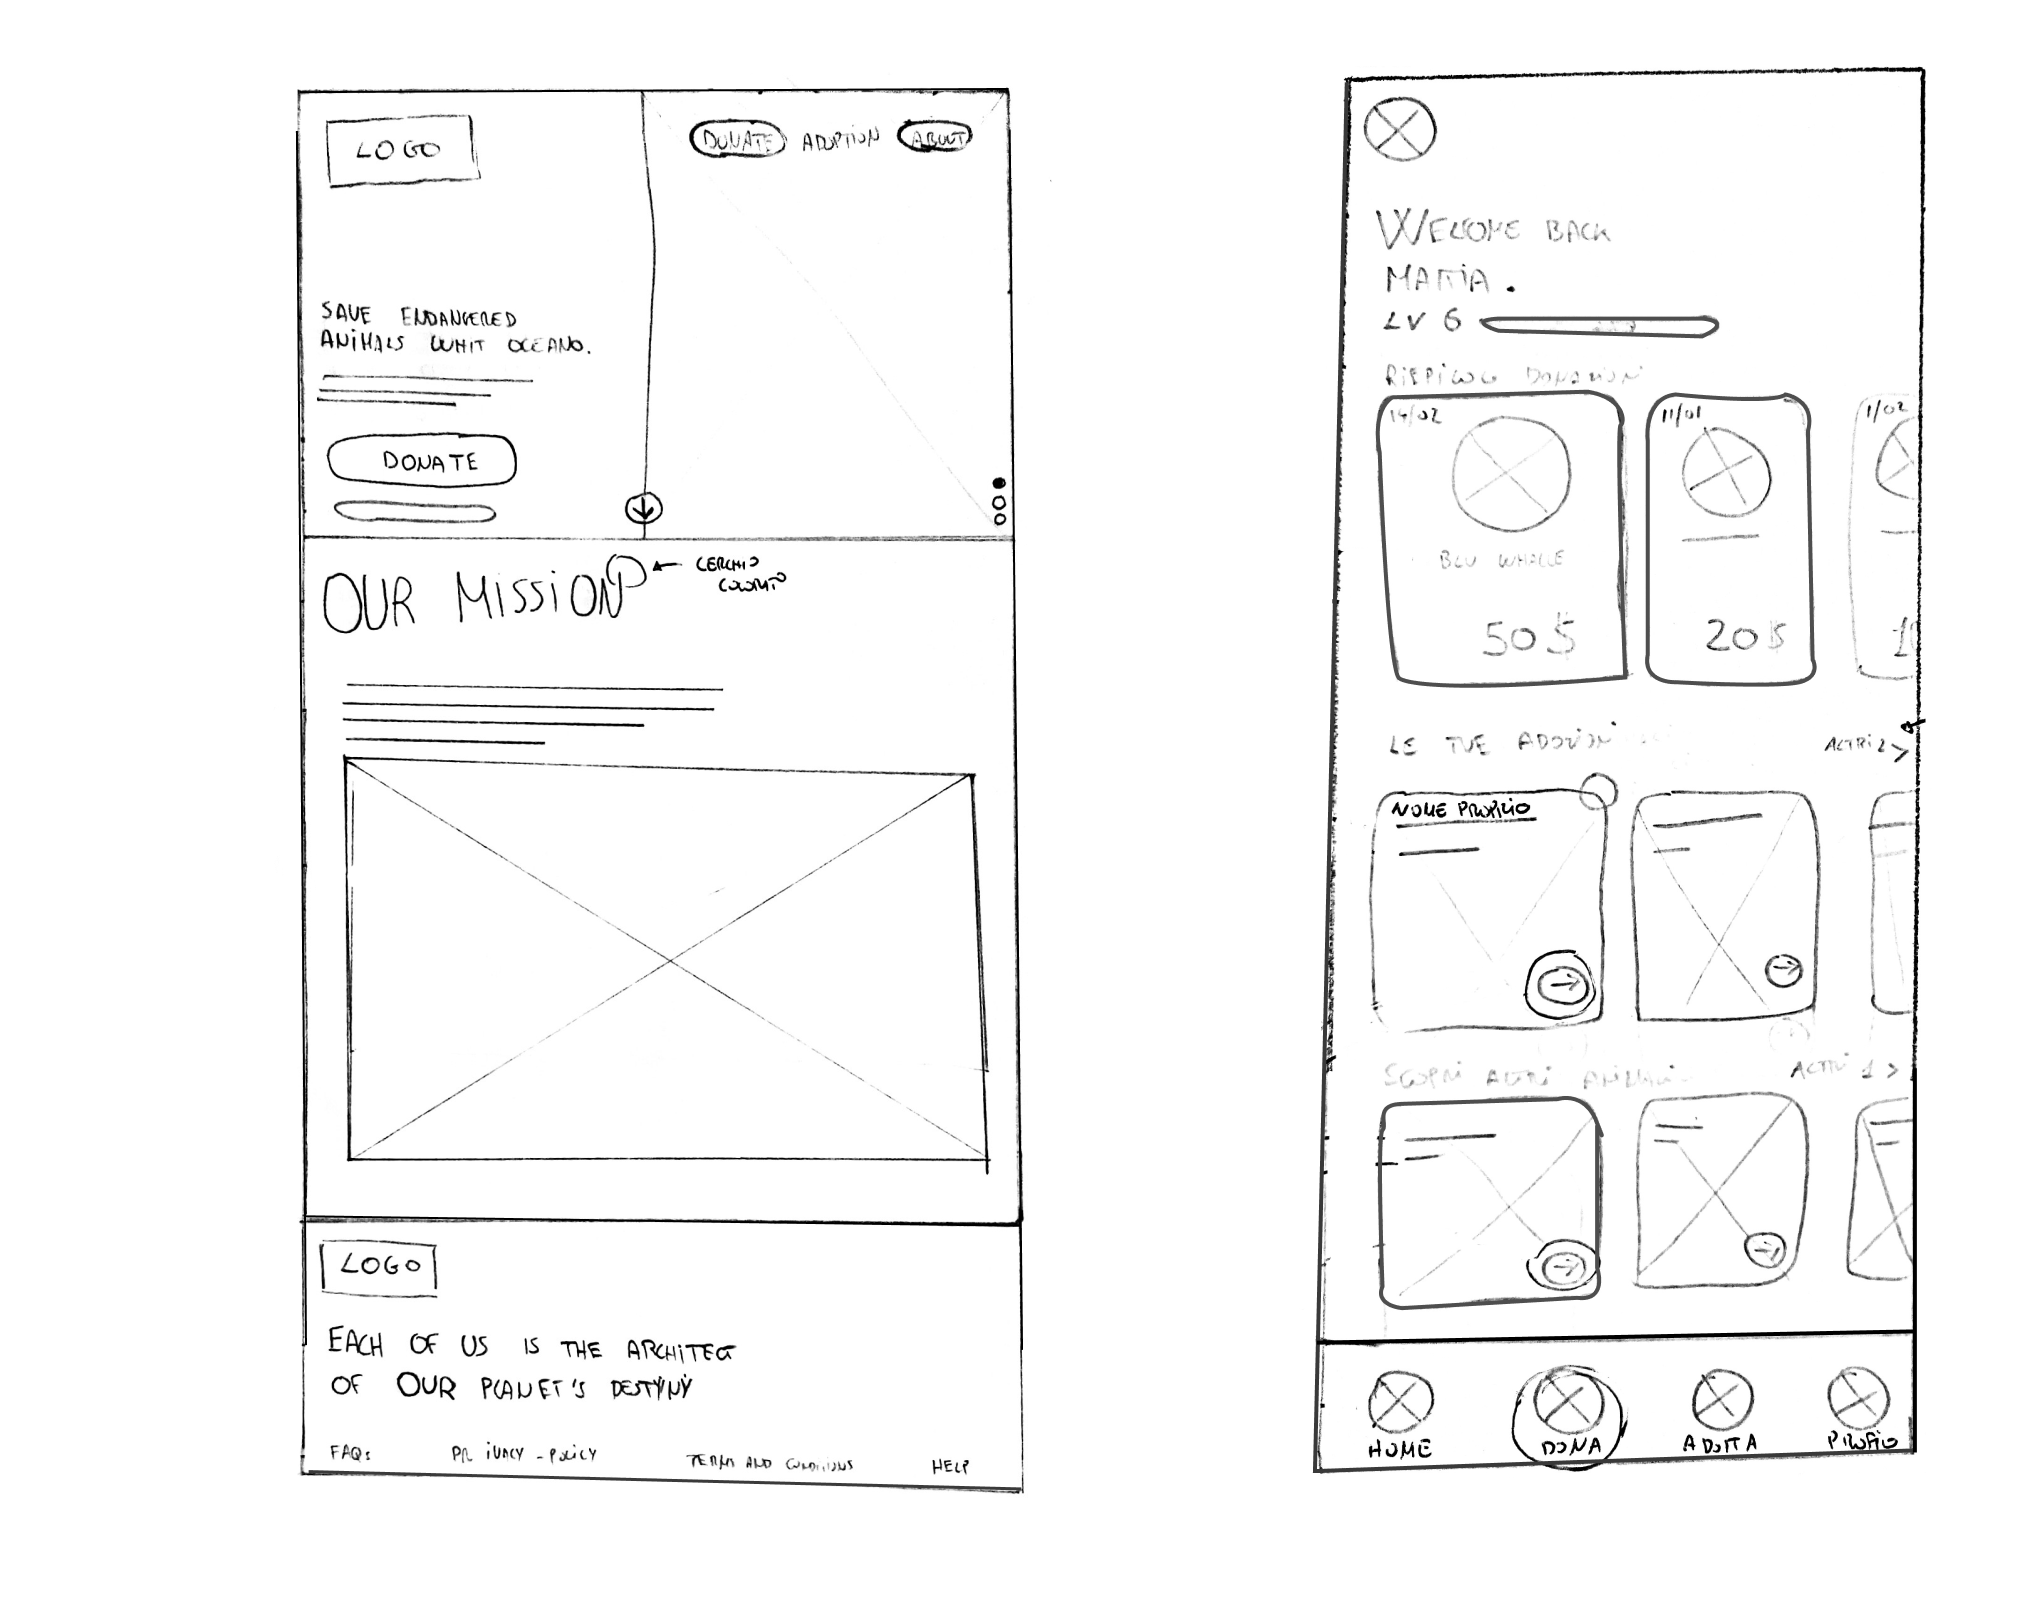 LOGO
DONATE ADOPTION ABOUT
SAVE ENDANGERED
ANIMALS WHIT OCEANO.
DONATE
OUR MISSION
CERCHIO
COLORATO
LOGO
EACH OF US IS THE ARCHITECT
OF OUR PLANET'S DESTYNY
FAQs PRIVACY-POLICY TERMS AND CONDITIONS HELP
WELCOME BACK
MATTIA.
LV 6
RIEPILOGO DONAZIONI
14/02 11/01 1/02
BLU WHALLE
50$ 20$ 10
LE TUE ADOZIONI ALTRI 2 >
NOME PROPRIO
SCOPRI ALTRI ANIMALI ALTRI 1 >
HOME DONA ADOTTA PROFIO